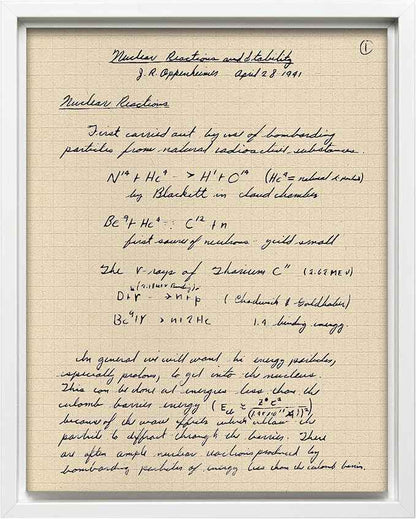 ①
Nuclear Reactions and Stability
J. R. Oppenheimer April 28 1941
Nuclear Reactions
First carried out by use of bombarding
particles from natural radioactive substances.
N¹⁴ + He⁴ → H¹ + O¹⁷ (He⁴ = natural α particles)
by Blackett in cloud chamber
Be⁹ + He⁴ → C¹² + n
first source of neutrons - yield small
The γ-rays of Thorium C" (2.62 MEV)
D + γ → n + p (Chadwick & Goldhaber)
Be⁹ + γ → n + 2He 1.7 binding energy
In general we will want hi energy particles,
especially protons, to get into the nucleus.
This can be done at energies less than the
coulomb barrier energy
because of the wave effects which allow the
particle to diffract through the barrier. There
are often ample nuclear reactions produced by
bombarding particles of energy less than the coulomb barrier.